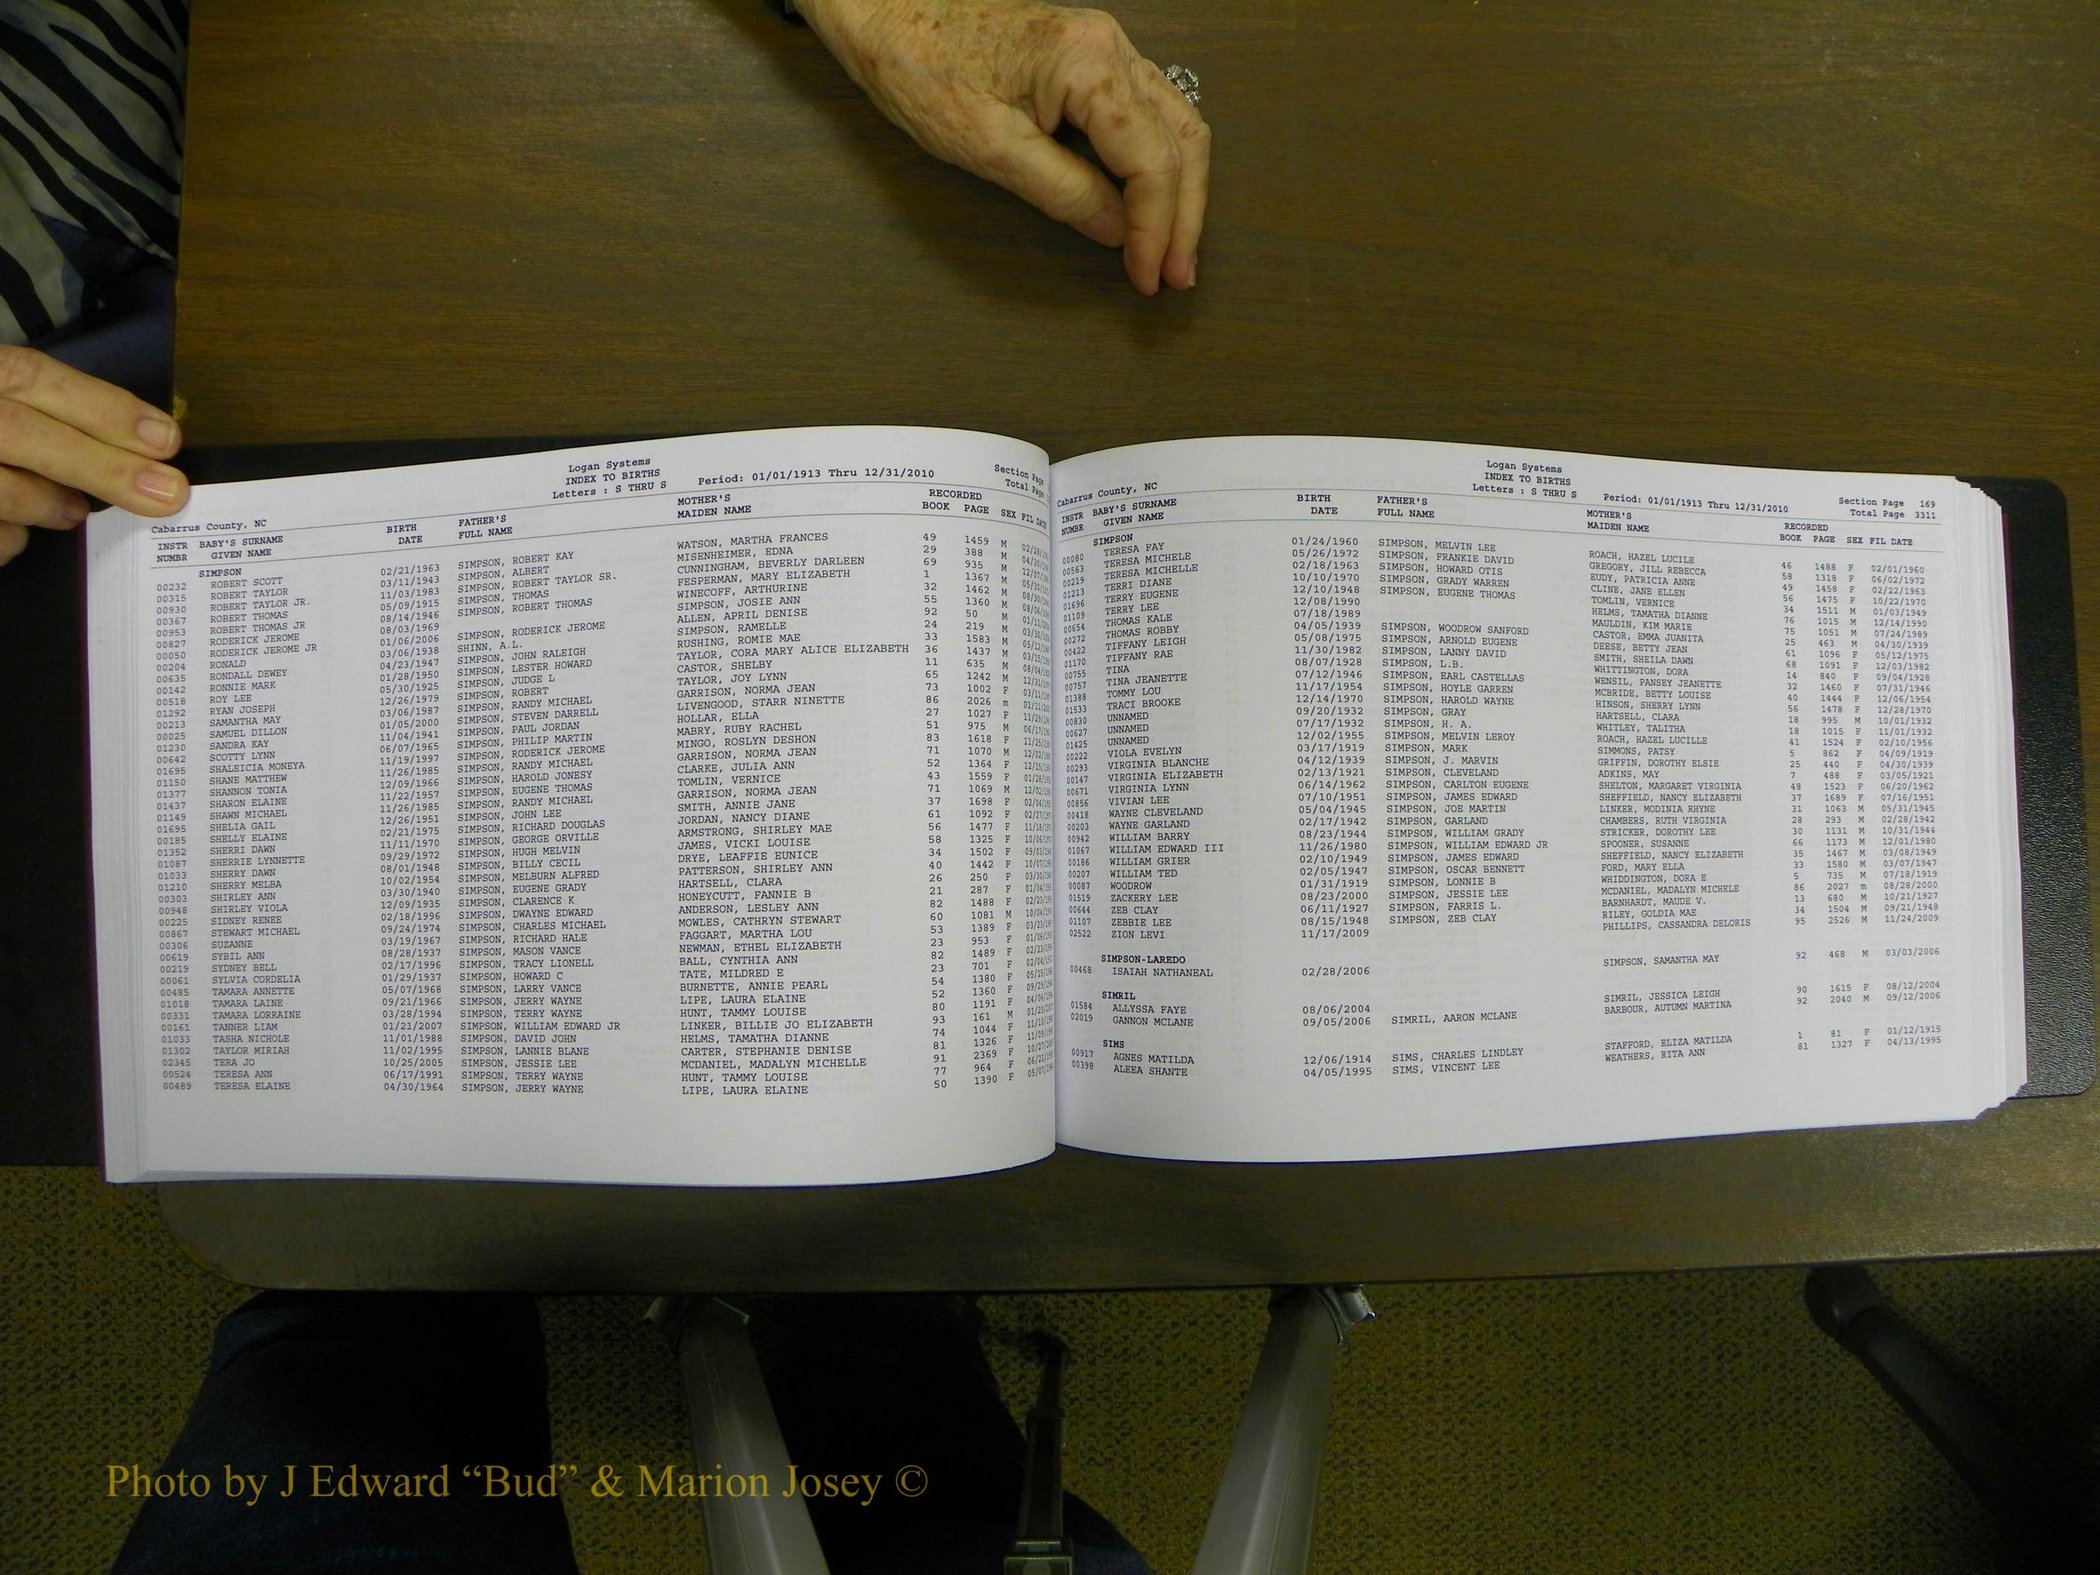 Logan Systems
INDEX TO BIRTHS
Letters : S THRU S
Period: 01/01/1913 Thru 12/31/2010
Section Page
Total Page
Cabarrus County, NC
INSTR BABY'S SURNAME BIRTH FATHER'S MOTHER'S RECORDED
NUMBR GIVEN NAME DATE FULL NAME MAIDEN NAME BOOK PAGE SEX FIL DATE
SIMPSON
00232 ROBERT SCOTT 02/21/1963 SIMPSON, ROBERT KAY WATSON, MARTHA FRANCES 49 1459 M
00315 ROBERT TAYLOR 03/11/1943 SIMPSON, ALBERT MISENHEIMER, EDNA 29 388 M
00930 ROBERT TAYLOR JR. 11/03/1983 SIMPSON, ROBERT TAYLOR SR. CUNNINGHAM, BEVERLY DARLEEN 69 935 M
00367 ROBERT THOMAS 05/09/1915 SIMPSON, THOMAS FESPERMAN, MARY ELIZABETH 1 1367 M
00953 ROBERT THOMAS JR 08/14/1946 SIMPSON, ROBERT THOMAS WINECOFF, ARTHURINE 32 1462 M
00827 RODERICK JEROME 08/03/1969 SIMPSON, JOSIE ANN 55 1360 M
00050 RODERICK JEROME JR 01/06/2006 SIMPSON, RODERICK JEROME ALLEN, APRIL DENISE 92 50 M
00204 RONALD 03/06/1938 SHINN, A.L. SIMPSON, RAMELLE 24 219 M
00635 RONDALL DEWEY 04/23/1947 SIMPSON, JOHN RALEIGH RUSHING, ROMIE MAE 33 1583 M
00142 RONNIE MARK 01/28/1950 SIMPSON, LESTER HOWARD TAYLOR, CORA MARY ALICE ELIZABETH 36 1437 M
00518 ROY LEE 05/30/1925 SIMPSON, JUDGE L CASTOR, SHELBY 11 635 M
01292 RYAN JOSEPH 12/26/1979 SIMPSON, ROBERT TAYLOR, JOY LYNN 65 1242 M
00213 SAMANTHA MAY 03/06/1987 SIMPSON, RANDY MICHAEL GARRISON, NORMA JEAN 73 1002 F
00025 SAMUEL DILLON 01/05/2000 SIMPSON, STEVEN DARRELL LIVENGOOD, STARR NINETTE 86 2026 m
01230 SANDRA KAY 11/04/1941 SIMPSON, PAUL JORDAN HOLLAR, ELLA 27 1027 F
00642 SCOTTY LYNN 06/07/1965 SIMPSON, PHILIP MARTIN MABRY, RUBY RACHEL 51 975 M
01695 SHALEICIA MONEYA 11/19/1997 SIMPSON, RODERICK JEROME MINGO, ROSLYN DESHON 83 1618 F
01150 SHANE MATTHEW 11/26/1985 SIMPSON, RANDY MICHAEL GARRISON, NORMA JEAN 71 1070 M
01377 SHANNON TONIA 12/09/1966 SIMPSON, HAROLD JONESY CLARKE, JULIA ANN 52 1364 F
01437 SHARON ELAINE 11/22/1957 SIMPSON, EUGENE THOMAS TOMLIN, VERNICE 43 1559 F
01149 SHAWN MICHAEL 11/26/1985 SIMPSON, RANDY MICHAEL GARRISON, NORMA JEAN 71 1069 M
01695 SHELIA GAIL 12/26/1951 SIMPSON, JOHN LEE SMITH, ANNIE JANE 37 1698 F
00185 SHELLY ELAINE 02/21/1975 SIMPSON, RICHARD DOUGLAS JORDAN, NANCY DIANE 61 1092 F
01352 SHERRI DAWN 11/11/1970 SIMPSON, GEORGE ORVILLE ARMSTRONG, SHIRLEY MAE 56 1477 F
01087 SHERRIE LYNNETTE 09/29/1972 SIMPSON, HUGH MELVIN JAMES, VICKI LOUISE 58 1325 F
01033 SHERRY DAWN 08/01/1948 SIMPSON, BILLY CECIL DRYE, LEAFFIE EUNICE 34 1502 F
01210 SHERRY MELBA 10/02/1954 SIMPSON, MELBURN ALFRED PATTERSON, SHIRLEY ANN 40 1442 F
00303 SHIRLEY ANN 03/30/1940 SIMPSON, EUGENE GRADY HARTSELL, CLARA 26 250 F
00948 SHIRLEY VIOLA 12/09/1935 SIMPSON, CLARENCE K HONEYCUTT, FANNIE B 21 287 F
00225 SIDNEY RENEE 02/18/1996 SIMPSON, DWAYNE EDWARD ANDERSON, LESLEY ANN 82 1488 F
00867 STEWART MICHAEL 09/24/1974 SIMPSON, CHARLES MICHAEL MOWLES, CATHRYN STEWART 60 1081 M
00306 SUZANNE 03/19/1967 SIMPSON, RICHARD HALE FAGGART, MARTHA LOU 53 1389 F
00619 SYBIL ANN 08/28/1937 SIMPSON, MASON VANCE NEWMAN, ETHEL ELIZABETH 23 953 F
00219 SYDNEY BELL 02/17/1996 SIMPSON, TRACY LIONELL BALL, CYNTHIA ANN 82 1489 F
00061 SYLVIA CORDELIA 01/29/1937 SIMPSON, HOWARD C TATE, MILDRED E 23 701 F
00485 TAMARA ANNETTE 05/07/1968 SIMPSON, LARRY VANCE BURNETTE, ANNIE PEARL 54 1380 F
01018 TAMARA LAINE 09/21/1966 SIMPSON, JERRY WAYNE LIPE, LAURA ELAINE 52 1360 F
00331 TAMARA LORRAINE 03/28/1994 SIMPSON, TERRY WAYNE HUNT, TAMMY LOUISE 80 1191 F
00161 TANNER LIAM 01/21/2007 SIMPSON, WILLIAM EDWARD JR LINKER, BILLIE JO ELIZABETH 93 161 M
01033 TASHA NICHOLE 11/01/1988 SIMPSON, DAVID JOHN HELMS, TAMATHA DIANNE 74 1044 F
01302 TAYLOR MIRIAH 11/02/1995 SIMPSON, LANNIE BLANE CARTER, STEPHANIE DENISE 81 1326 F
02345 TERA JO 10/25/2005 SIMPSON, JESSIE LEE MCDANIEL, MADALYN MICHELLE 91 2369 F
00524 TERESA ANN 06/17/1991 SIMPSON, TERRY WAYNE HUNT, TAMMY LOUISE 77 964 F
00489 TERESA ELAINE 04/30/1964 SIMPSON, JERRY WAYNE LIPE, LAURA ELAINE 50 1390 F
Logan Systems
INDEX TO BIRTHS
Letters : S THRU S
Period: 01/01/1913 Thru 12/31/2010
Section Page 169
Total Page 3311
Cabarrus County, NC
INSTR BABY'S SURNAME BIRTH FATHER'S MOTHER'S RECORDED
NUMBR GIVEN NAME DATE FULL NAME MAIDEN NAME BOOK PAGE SEX FIL DATE
SIMPSON
00080 TERESA FAY 01/24/1960 SIMPSON, MELVIN LEE ROACH, HAZEL LUCILE 46 1488 F 02/01/1960
00563 TERESA MICHELE 05/26/1972 SIMPSON, FRANKIE DAVID GREGORY, JILL REBECCA 58 1318 F 06/02/1972
00219 TERESA MICHELLE 02/18/1963 SIMPSON, HOWARD OTIS EUDY, PATRICIA ANNE 49 1458 F 02/22/1963
01213 TERRI DIANE 10/10/1970 SIMPSON, GRADY WARREN CLINE, JANE ELLEN 56 1475 F 10/22/1970
01696 TERRY EUGENE 12/10/1948 SIMPSON, EUGENE THOMAS TOMLIN, VERNICE 34 1511 M 01/03/1949
01109 TERRY LEE 12/08/1990 HELMS, TAMATHA DIANNE 76 1015 M 12/14/1990
00654 THOMAS KALE 07/18/1989 MAULDIN, KIM MARIE 75 1051 M 07/24/1989
00272 THOMAS ROBBY 04/05/1939 SIMPSON, WOODROW SANFORD CASTOR, EMMA JUANITA 25 463 M 04/30/1939
00422 TIFFANY LEIGH 05/08/1975 SIMPSON, ARNOLD EUGENE DEESE, BETTY JEAN 61 1096 F 05/12/1975
01170 TIFFANY RAE 11/30/1982 SIMPSON, LANNY DAVID SMITH, SHEILA DAWN 68 1091 F 12/03/1982
00755 TINA 08/07/1928 SIMPSON, L.B. WHITTINGTON, DORA 14 840 F 09/04/1928
00757 TINA JEANETTE 07/12/1946 SIMPSON, EARL CASTELLAS WENSIL, PANSEY JEANETTE 32 1460 F 07/31/1946
01388 TOMMY LOU 11/17/1954 SIMPSON, HOYLE GARREN MCBRIDE, BETTY LOUISE 40 1444 F 12/06/1954
01533 TRACI BROOKE 12/14/1970 SIMPSON, HAROLD WAYNE HINSON, SHERRY LYNN 56 1478 F 12/28/1970
00830 UNNAMED 09/20/1932 SIMPSON, GRAY HARTSELL, CLARA 18 995 M 10/01/1932
00627 UNNAMED 07/17/1932 SIMPSON, H. A. WHITLEY, TALITHA 18 1015 F 11/01/1932
01425 UNNAMED 12/02/1955 SIMPSON, MELVIN LEROY ROACH, HAZEL LUCILLE 41 1524 F 02/10/1956
00222 VIOLA EVELYN 03/17/1919 SIMPSON, MARK SIMMONS, PATSY 5 862 F 04/09/1919
00293 VIRGINIA BLANCHE 04/12/1939 SIMPSON, J. MARVIN GRIFFIN, DOROTHY ELSIE 25 440 F 04/30/1939
00147 VIRGINIA ELIZABETH 02/13/1921 SIMPSON, CLEVELAND ADKINS, MAY 7 488 F 03/05/1921
00671 VIRGINIA LYNN 06/14/1962 SIMPSON, CARLTON EUGENE SHELTON, MARGARET VIRGINIA 48 1523 F 06/20/1962
00856 VIVIAN LEE 07/10/1951 SIMPSON, JAMES EDWARD SHEFFIELD, NANCY ELIZABETH 37 1689 F 07/16/1951
00418 WAYNE CLEVELAND 05/04/1945 SIMPSON, JOE MARTIN LINKER, MCDINIA RHYNE 31 1063 M 05/31/1945
00203 WAYNE GARLAND 02/17/1942 SIMPSON, GARLAND CHAMBERS, RUTH VIRGINIA 28 293 M 02/28/1942
00942 WILLIAM BARRY 08/23/1944 SIMPSON, WILLIAM GRADY STRICKER, DOROTHY LEE 30 1131 M 10/31/1944
01067 WILLIAM EDWARD III 11/26/1980 SIMPSON, WILLIAM EDWARD JR SPOONER, SUSANNE 66 1173 M 12/01/1980
00186 WILLIAM GRIER 02/10/1949 SIMPSON, JAMES EDWARD SHEFFIELD, NANCY ELIZABETH 35 1467 M 03/08/1949
00207 WILLIAM TED 02/05/1947 SIMPSON, OSCAR BENNETT FORD, MARY ELLA 33 1580 M 03/07/1947
00087 WOODROW 01/31/1919 SIMPSON, LONNIE B WHIDDINGTON, DORA E 5 735 M 07/18/1919
01519 ZACKERY LEE 08/23/2000 SIMPSON, JESSIE LEE MCDANIEL, MADALYN MICHELE 86 2027 m 08/28/2000
00644 ZEB CLAY 06/11/1927 SIMPSON, FARRIS L. BARNHARDT, MAUDE V. 13 680 M 10/21/1927
01107 ZEBBIE LEE 08/15/1948 SIMPSON, ZEB CLAY RILEY, GOLDIA MAE 34 1504 M 09/21/1948
02522 ZION LEVI 11/17/2009 PHILLIPS, CASSANDRA DELORIS 95 2526 M 11/24/2009
SIMPSON-LAREDO
00468 ISAIAH NATHANEAL 02/28/2006 SIMPSON, SAMANTHA MAY 92 468 M 03/03/2006
SIMRIL
01584 ALLYSSA FAYE 08/06/2004 SIMRIL, JESSICA LEIGH 90 1615 F 08/12/2004
02019 GANNON MCLANE 09/05/2006 SIMRIL, AARON MCLANE BARBOUR, AUTUMN MARTINA 92 2040 M 09/12/2006
SIMS
00917 AGNES MATILDA 12/06/1914 SIMS, CHARLES LINDLEY STAFFORD, ELIZA MATILDA 1 81 F 01/12/1915
00398 ALEEA SHANTE 04/05/1995 SIMS, VINCENT LEE WEATHERS, RITA ANN 81 1327 F 04/13/1995
Photo by J Edward “Bud” & Marion Josey ©